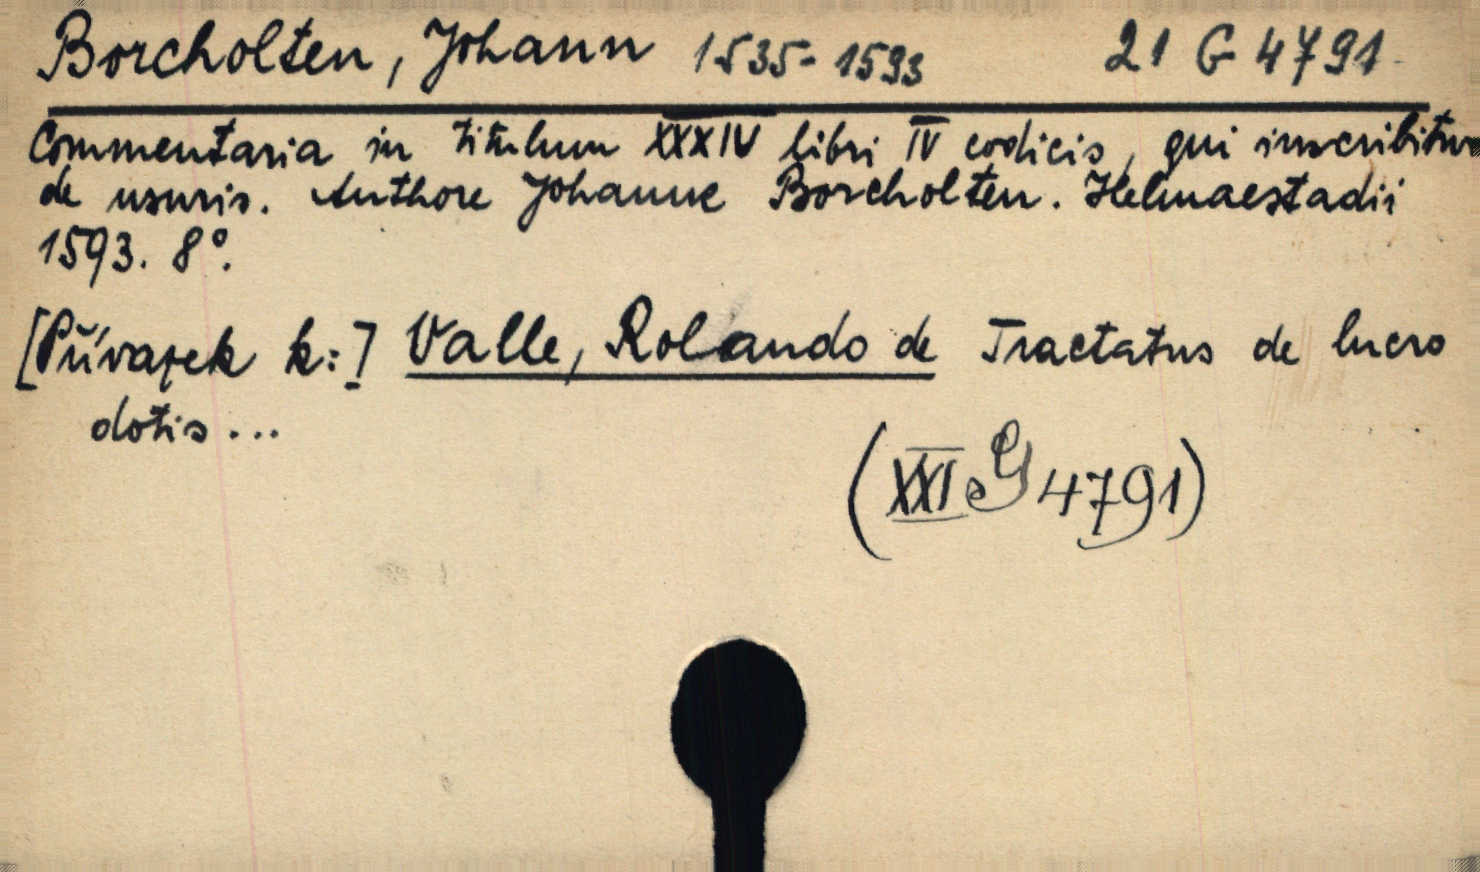 Borcholten, Johann 1535-1593 21 G 4791
Commentaria in titulum XXXIV libri IV codicis, qui inscribitur
de usuris. Authore Johanne Borcholten. Helmaestadii
1593. 8°.
[Přívazek k:] Valle, Rolando de Tractatus de lucro
dotis...
(XXI G 4791)